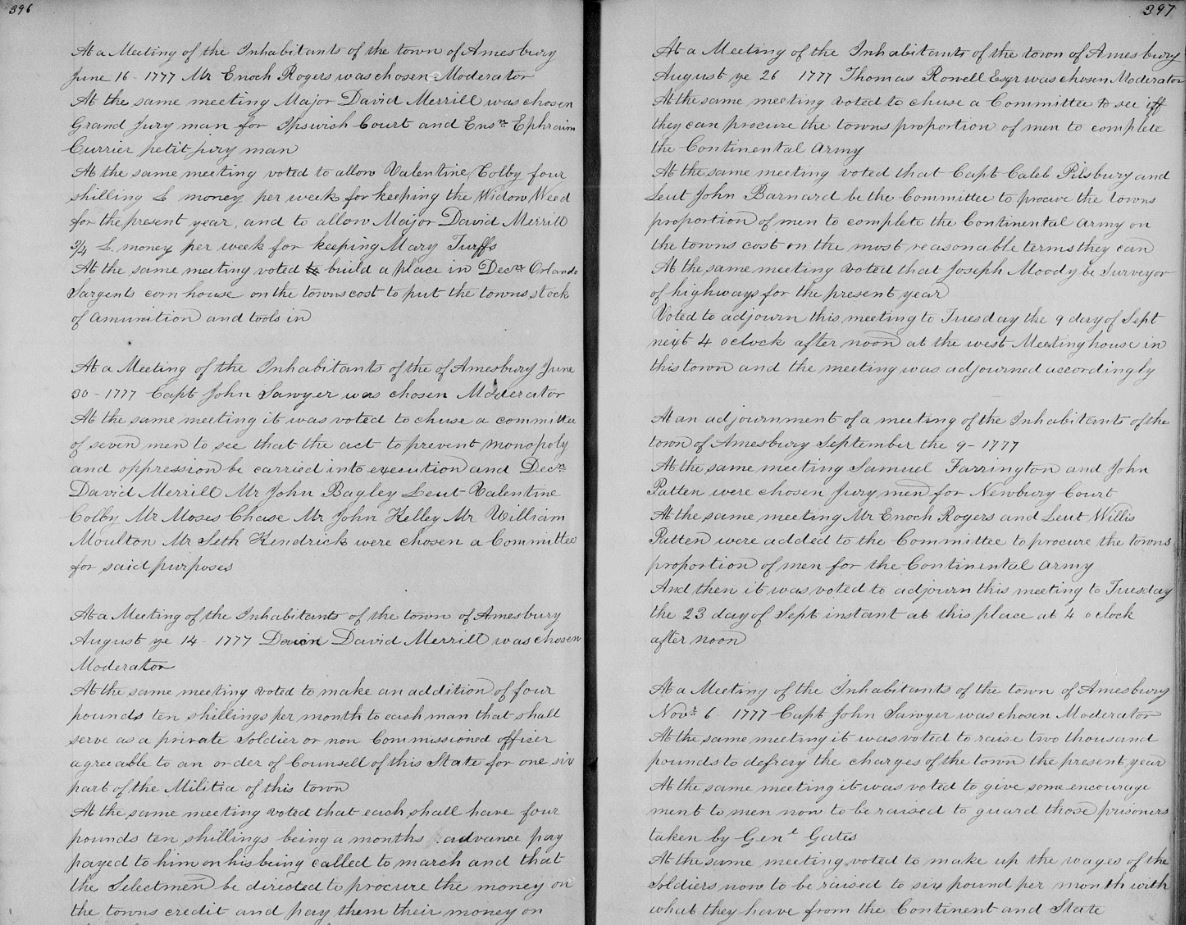 396
At a Meeting of the Inhabitants of the town of Amesbury
June 16 - 1777 Mr Enoch Rogers was chosen Moderator
At the same meeting Major David Merrill was chosen
Grand Jury man for Ipswich Court and Ensn Ephraim
Currier petit jury man
At the same meeting voted to allow Valentine Colby four
shilling L money per week for keeping the Widow Weed
for the present year and to allow Major David Merrill
3/4 L money per week for keeping Mary Turffs
At the same meeting voted to build a place in Decn Orlando
Sargents corn house on the towns cost to put the towns stock
of amunition and tools in
At a Meeting of the Inhabitants of the of Amesbury June
30 - 1777 Capt John Sawyer was chosen Moderator
At the same meeting it was voted to chuse a committee
of seven men to see that the act to prevent monopoly
and oppression be carried into execution and Decn
David Merrill Mr John Bagley Leut Valentine
Colby Mr Moses Chase Mr John Kelley Mr William
Moulton Mr Seth Kendrick were chosen a Committee
for said purposes
At a Meeting of the Inhabitants of the town of Amesbury
August ye 14 - 1777 David Merrill was chosen
Moderator
At the same meeting voted to make an addition of four
pounds ten shillings per month to each man that shall
serve as a private soldier or non Commissioned officer
agreeable to an order of Counsell of this State for one six
part of the Militia of this town
At the same meeting voted that each shall have four
pounds ten shillings being a months advance pay
payed to him on his being called to march and that
the Selectmen be directed to procure the money on
the towns credit and pay them their money on
397
At a Meeting of the Inhabitants of the town of Amesbury
August ye 26 1777 Thomas Rowell Esqr was chosen Moderator
At the same meeting voted to chuse a Committee to see iff
they can procure the towns proportion of men to complete
the Continental Army
At the same meeting voted that Capt Caleb Pilsbury and
Leut John Barnard be the Committee to procure the towns
proportion of men to complete the Continental Army on
the towns cost on the most reasonable terms they can
At the same meeting voted that Joseph Moody be Surveyor
of highways for the present year
Voted to adjourn this meeting to Tuesday the 9 day of Sept
next 4 oclock after noon at the west Meeting house in
this town and the meeting was adjourned accordingly
At an adjournment of a meeting of the Inhabitants of the
town of Amesbury September the 9 - 1777
At the same meeting Samuel Farrington and John
Patten were chosen Jury men for Newbury Court
At the same meeting Mr Enoch Rogers and Leut Willis
Patten were added to the Committee to procure the towns
proportion of men for the Continental Army
And then it was voted to adjourn this meeting to Tuesday
the 23 day of Sept instant at this place at 4 oclock
after noon
At a Meeting of the Inhabitants of the town of Amesbury
Novr 6 - 1777 Capt John Sawyer was chosen Moderator
At the same meeting it was voted to raise two thousand
pounds to defray the charges of the town the present year
At the same meeting it was voted to give some encourage
ment to men now to be raised to guard those prisoners
taken by Genl Gates
At the same meeting voted to make up the wages of the
Soldiers now to be raised to six pound per month with
what they have from the Continent and State